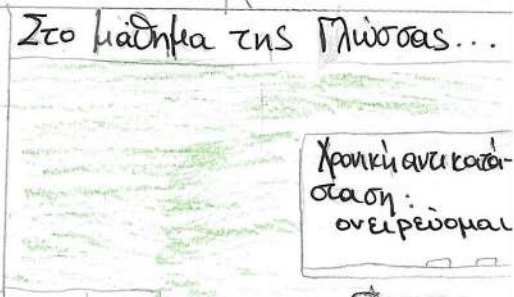 Στο μάθημα της Γλώσσας...
Χρονική αντικατά-
σταση:
ονειρεύομαι